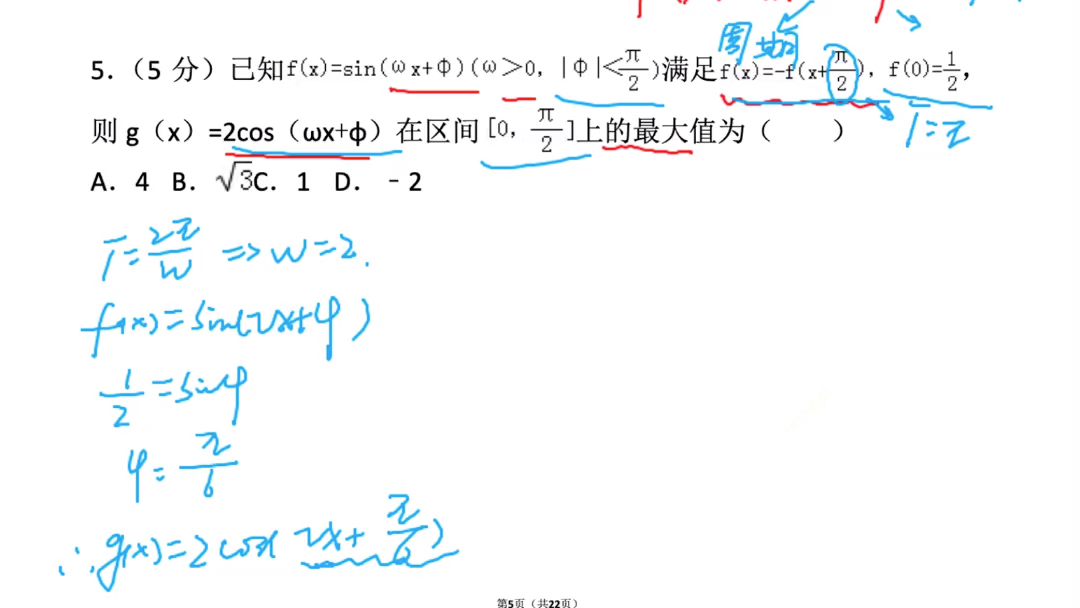 周期
5.（5 分）已知f(x)=sin(ωx+Φ)(ω>0, |Φ|<π/2)满足f(x)=-f(x+π/2), f(0)=1/2,
T=π
则 g（x）=2cos（ωx+φ）在区间[0, π/2]上的最大值为（　　）
A. 4 B. √3C. 1 D. －2
T=2π/w => w=2.
f(x)=sin(2x+φ)
1/2=sinφ
φ=π/6
∴g(x)=2cos(2x+π/6)
第5页（共22页）